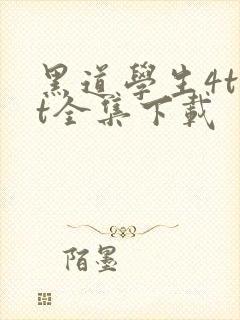 黑道學生4t
t全集下載
陌墨